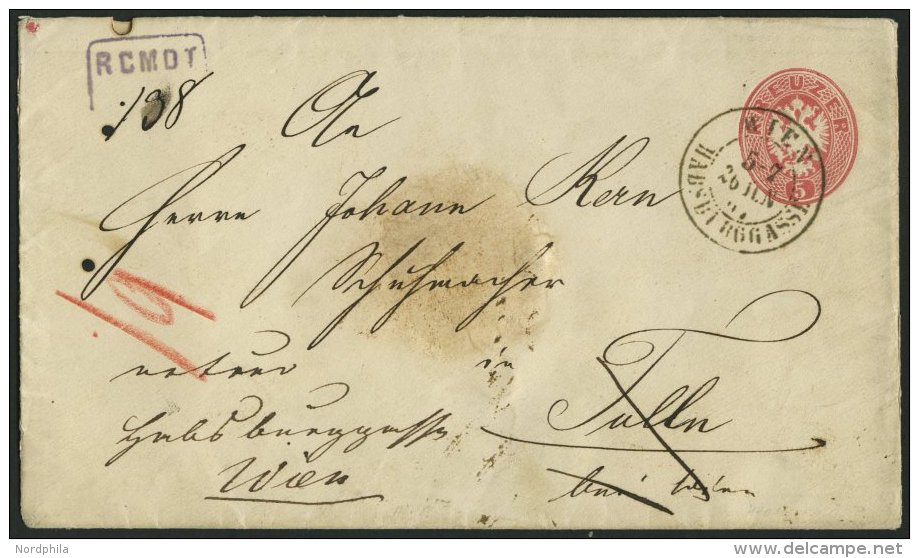 RCMDT
138
KREUZER
5
An
WIEN
5-7
26 JUN
HABSBURGGASSE
Herrn Johann Kern
Schuhmacher
19
retour in
Habsburggasse Tulln
Wien bei Wien
Nordphila delcampe.net